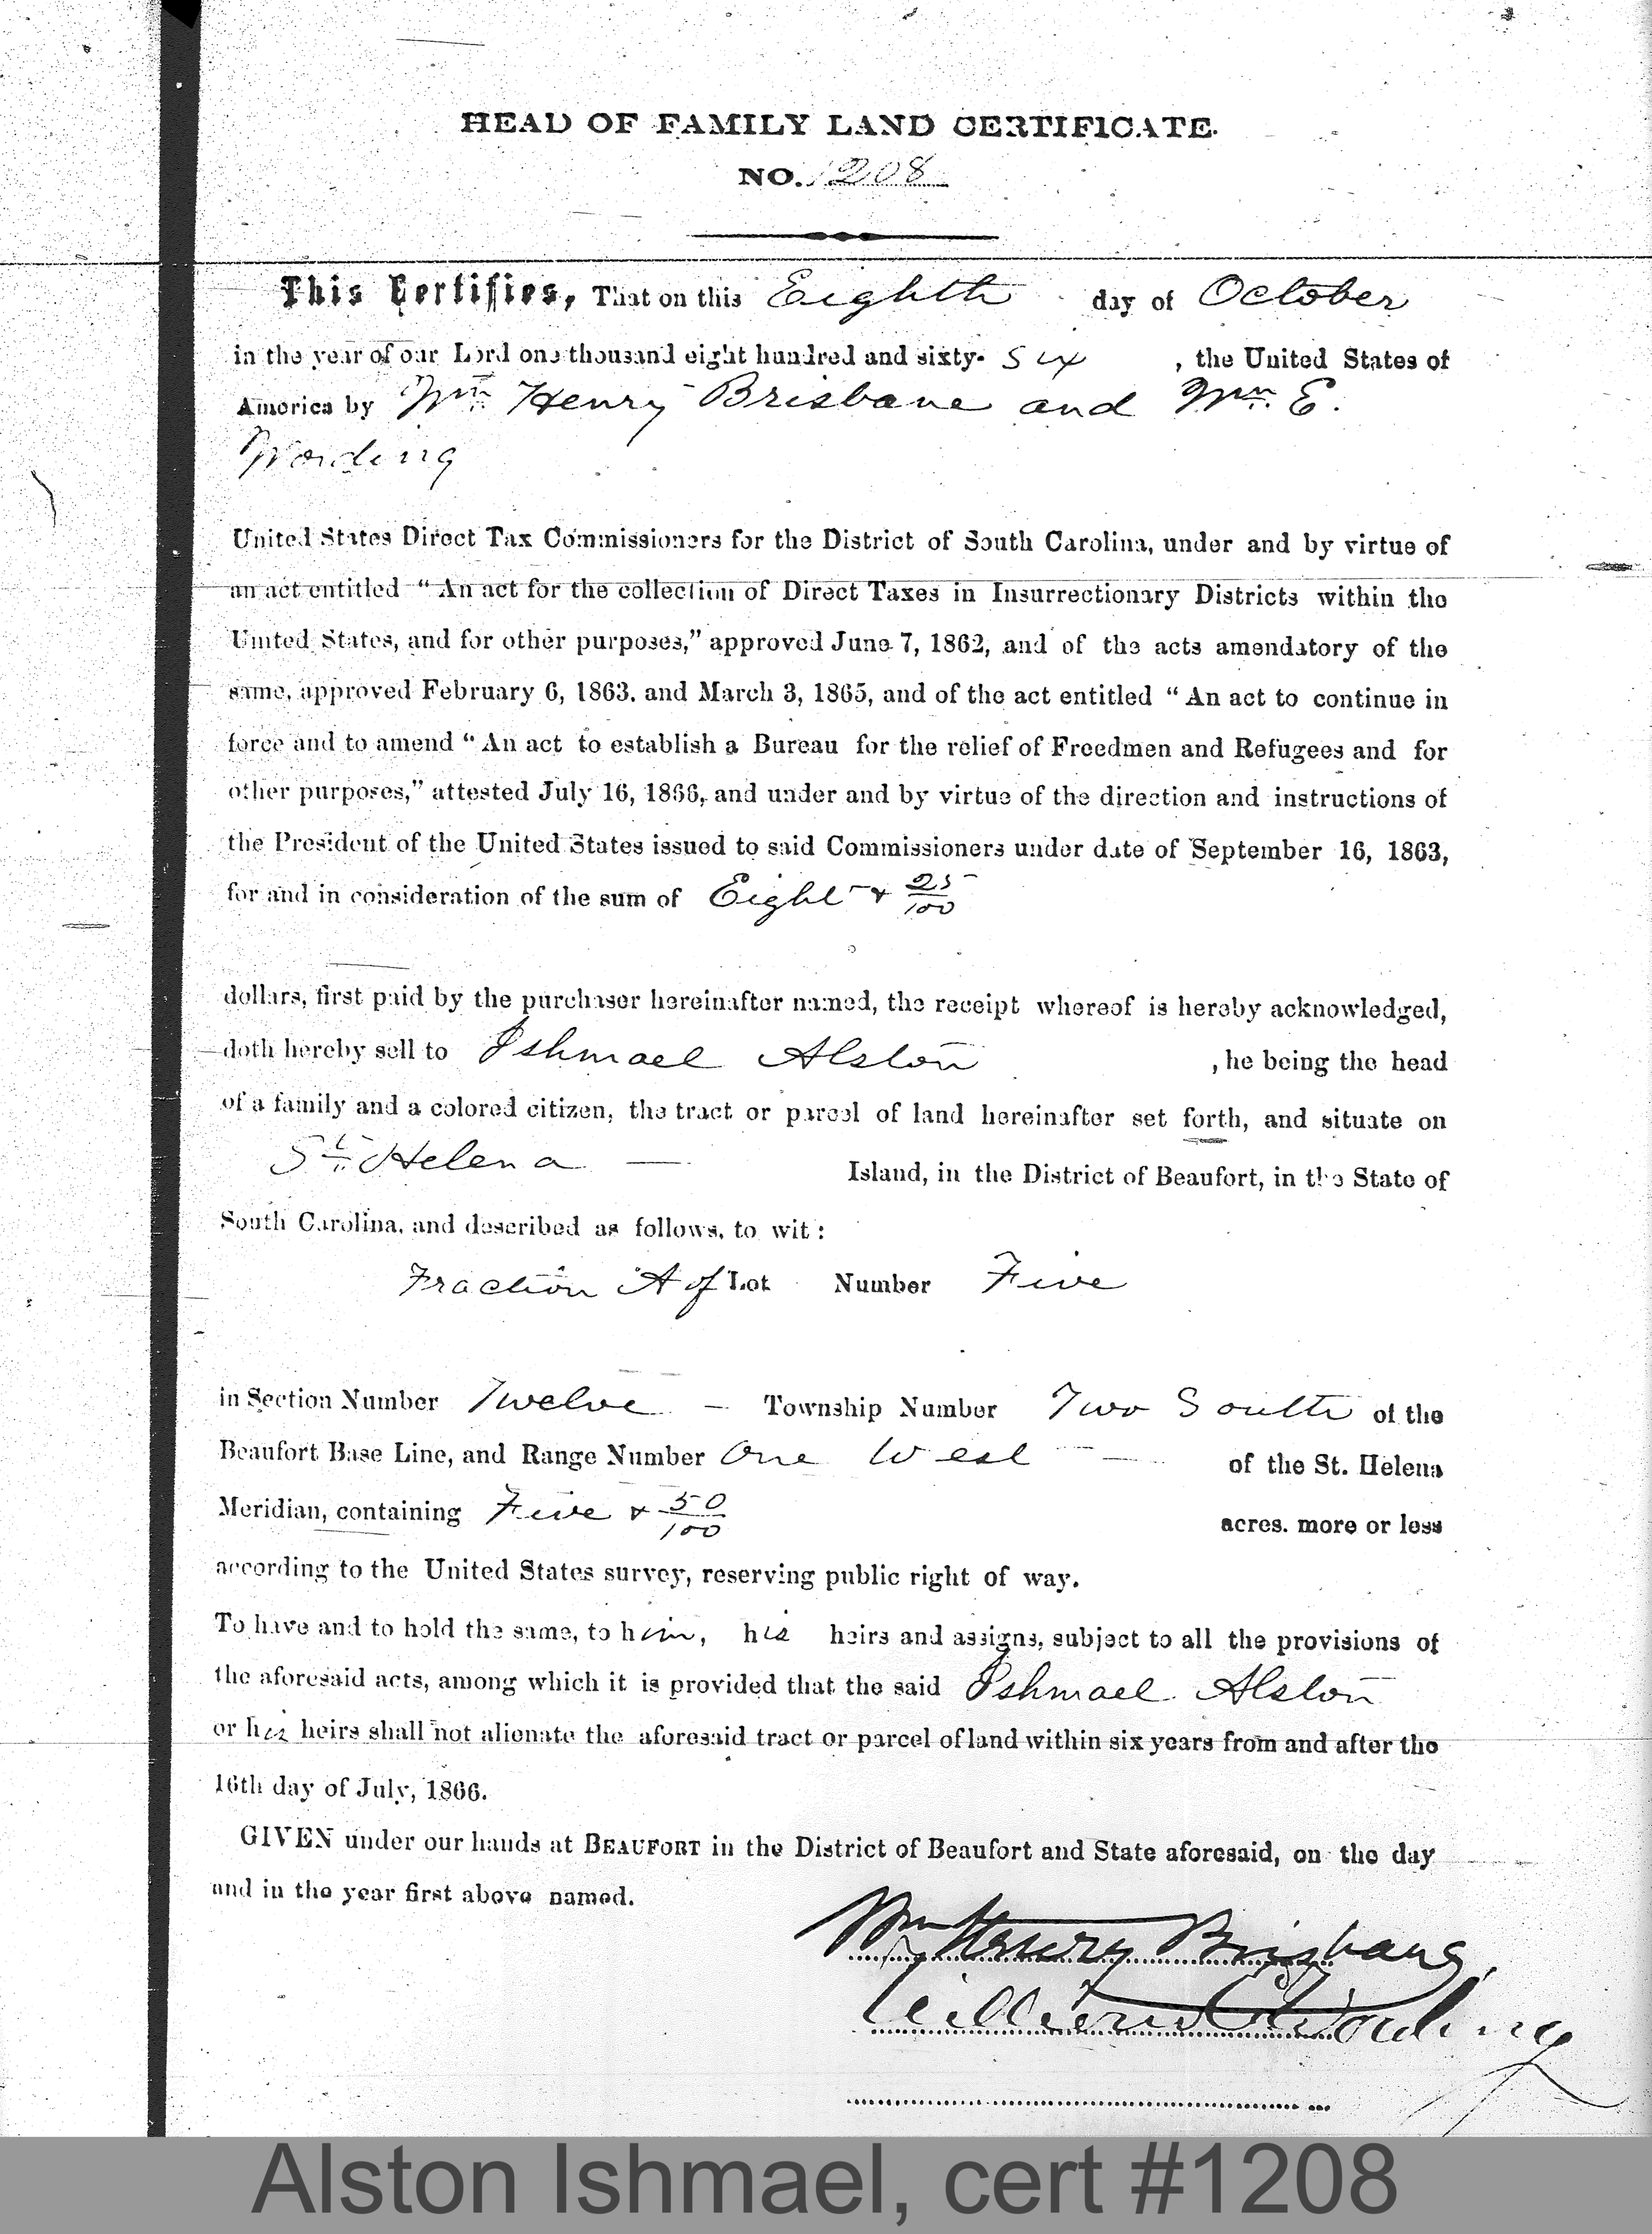 HEAD OF FAMILY LAND CERTIFICATE.
NO. 1208
This Certifies, That on this Eighth day of October
in the year of our Lord one thousand eight hundred and sixty- six , the United States of
America by Wm. Henry Brisbane and Wm. E.
Wording
United States Direct Tax Commissioners for the District of South Carolina, under and by virtue of
an act entitled “An act for the collection of Direct Taxes in Insurrectionary Districts within the
United States, and for other purposes,” approved June 7, 1862, and of the acts amendatory of the
same, approved February 6, 1863. and March 3, 1865, and of the act entitled “An act to continue in
force and to amend “An act to establish a Bureau for the relief of Freedmen and Refugees and for
other purposes,” attested July 16, 1866, and under and by virtue of the direction and instructions of
the President of the United States issued to said Commissioners under date of September 16, 1863,
for and in consideration of the sum of Eight & 25/100
dollars, first paid by the purchaser hereinafter named, the receipt whereof is hereby acknowledged,
doth hereby sell to Ishmael Alston , he being the head
of a family and a colored citizen, the tract or parcel of land hereinafter set forth, and situate on
St. Helena — Island, in the District of Beaufort, in the State of
South Carolina, and described as follows, to wit:
Fraction A of Lot Number Five
in Section Number Twelve – Township Number Two South of the
Beaufort Base Line, and Range Number One West — of the St. Helena
Meridian, containing Five & 50/100 acres. more or less
according to the United States survey, reserving public right of way.
To have and to hold the same, to him, his heirs and assigns, subject to all the provisions of
the aforesaid acts, among which it is provided that the said Ishmael Alston
or his heirs shall not alienate the aforesaid tract or parcel of land within six years from and after the
16th day of July, 1866.
GIVEN under our hands at BEAUFORT in the District of Beaufort and State aforesaid, on the day
and in the year first above named.
Wm Henry Brisbane,
William E Wording
Alston Ishmael, cert #1208